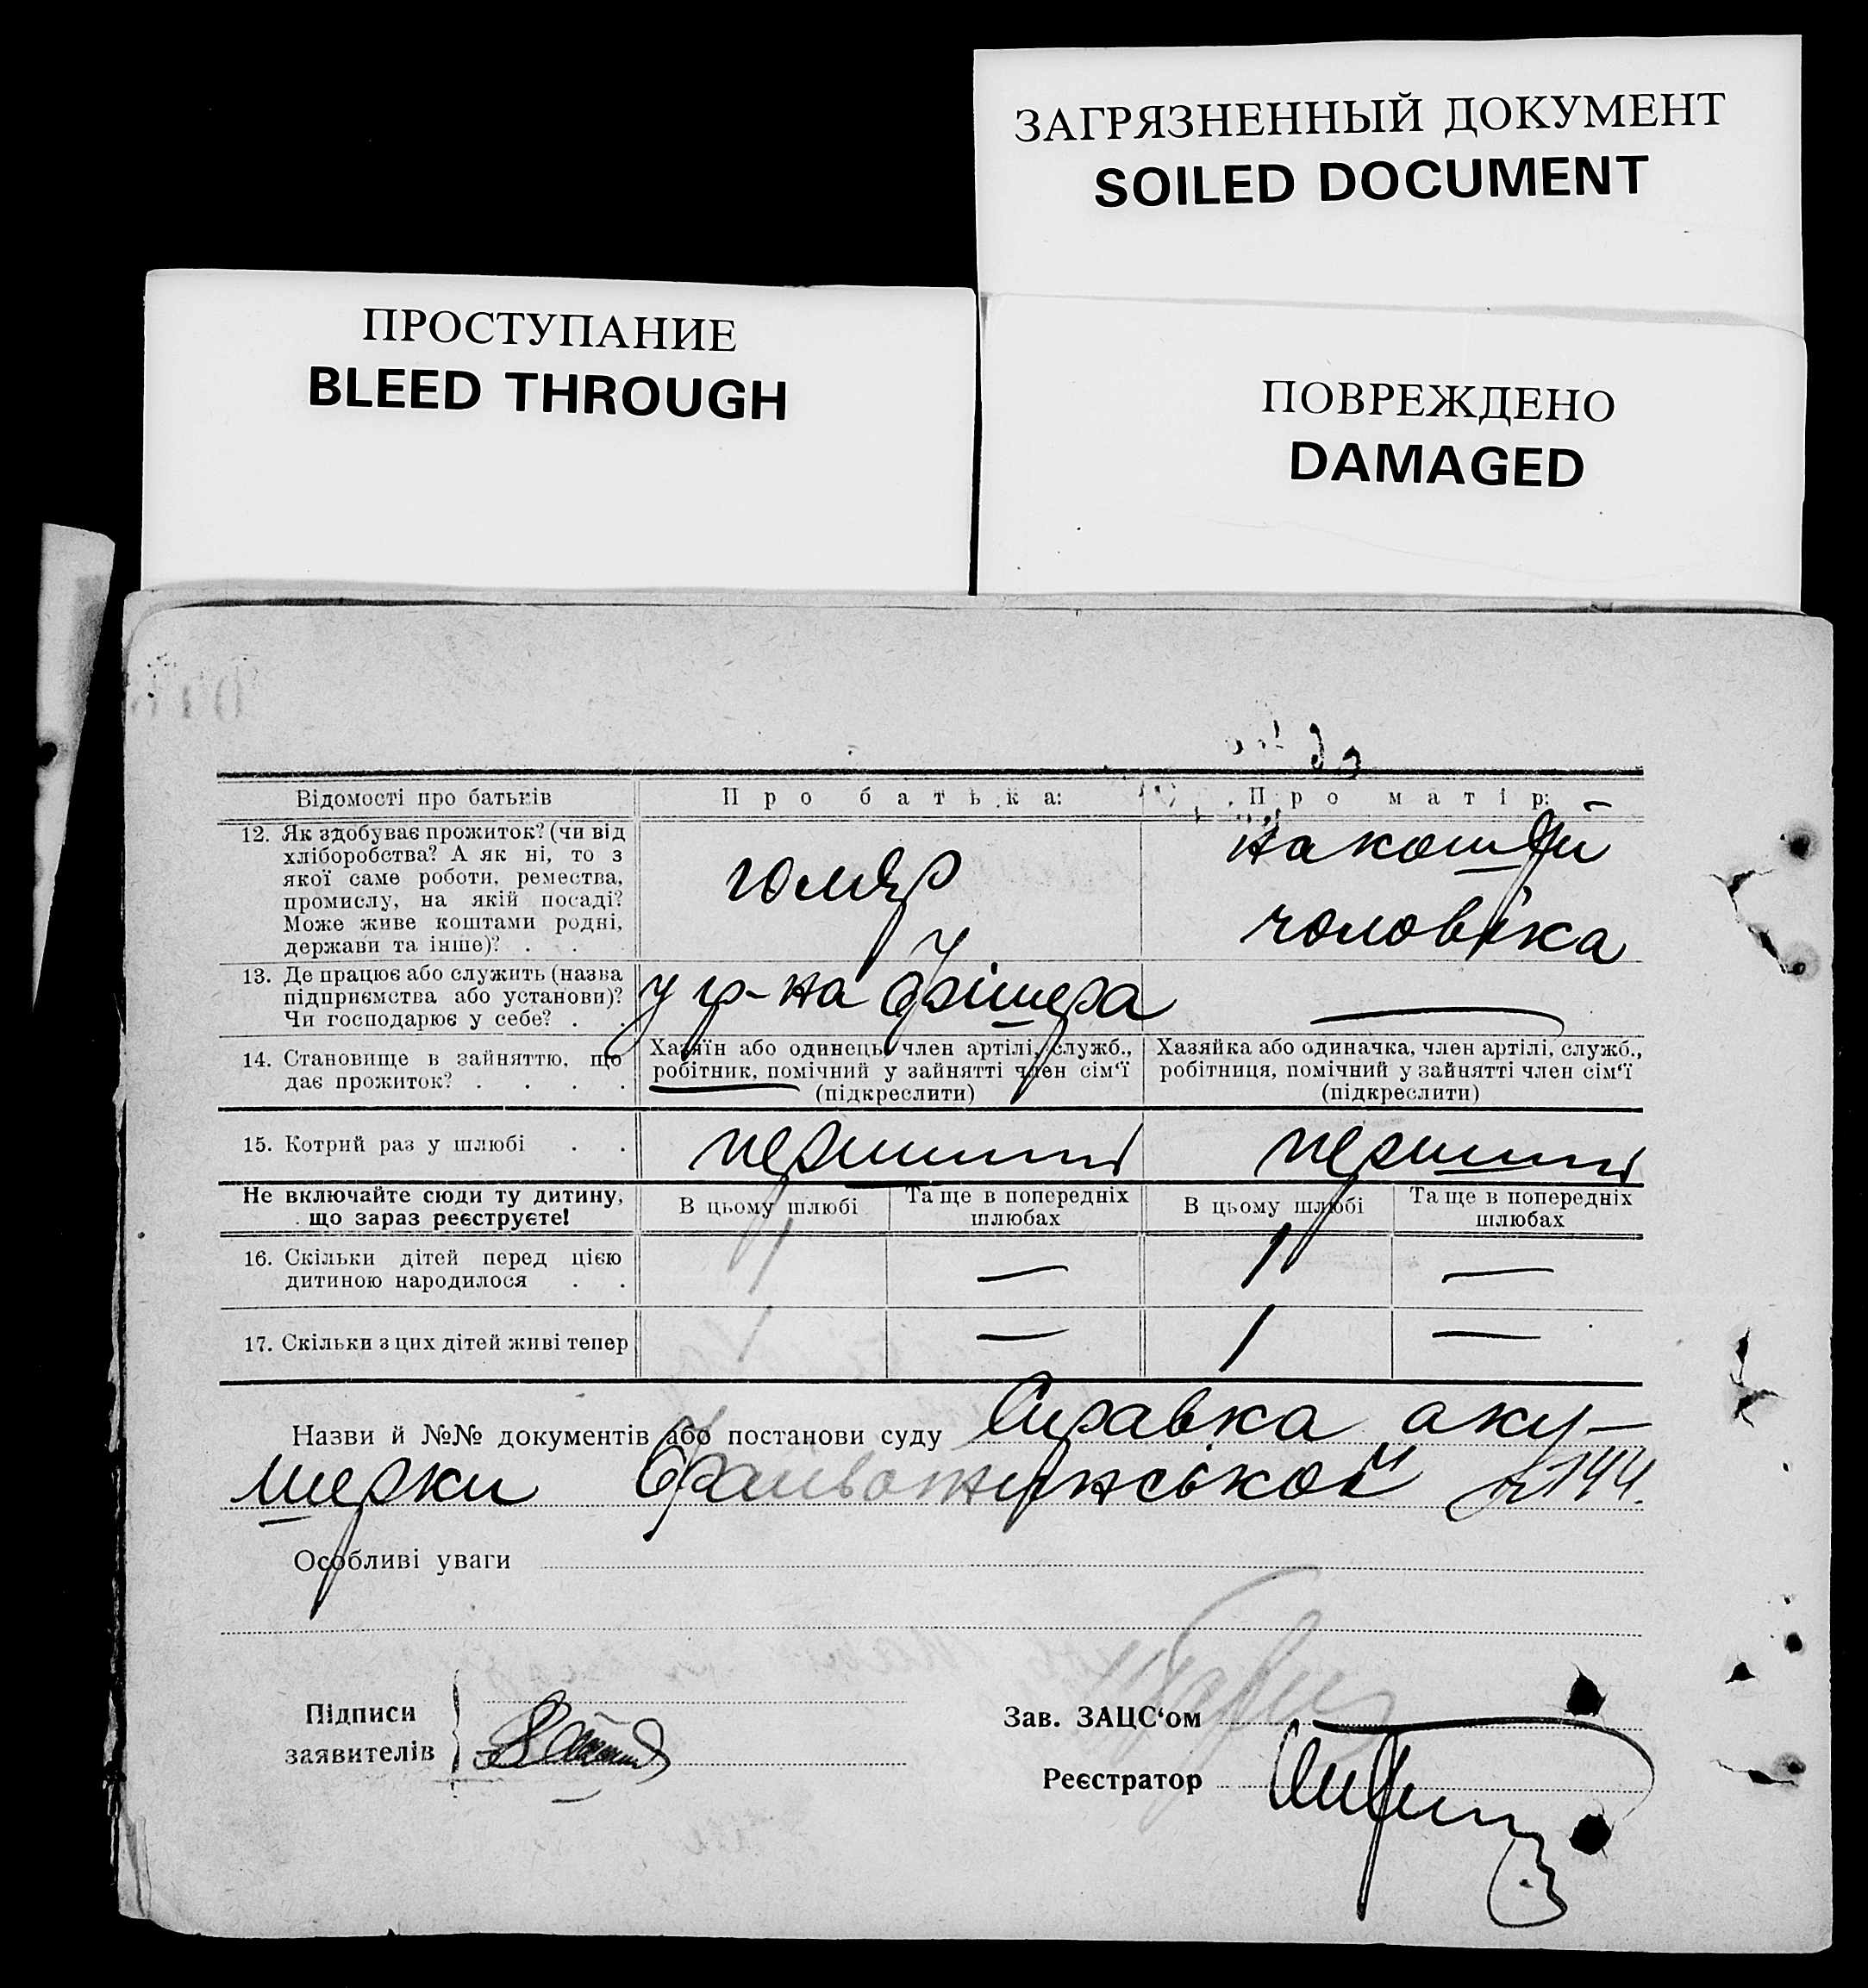 ЗАГРЯЗНЕННЫЙ ДОКУМЕНТ
SOILED DOCUMENT
ПРОСТУПАНИЕ
BLEED THROUGH
ПОВРЕЖДЕНО
DAMAGED
Відомості про батьків
Про батька:
Про матір:
12. Як здобуває прожиток? (чи від
хліборобства? А як ні, то з
якої саме роботи, ремества,
промислу, на якій посаді?
Може живе коштами родні,
держави та інше)? . .
голяр
на кошти
чоловіка
13. Де працює або служить (назва
підприємства або установи)?
Чи господарює у себе? .
у гр-на Фрішера
—
14. Становище в зайняттю, що
дає прожиток? . . . .
Хазяїн або одинець, член артілі, служб.,
робітник, помічний у зайнятті член сім'ї
(підкреслити)
Хазяйка або одиначка, член артілі, служб.,
робітниця, помічний у зайнятті член сім'ї
(підкреслити)
15. Котрий раз у шлюбі . .
перший
перший
Не включайте сюди ту дитину,
що зараз реєструєте!
В цьому шлюбі
Та ще в попередніх
шлюбах
В цьому шлюбі
Та ще в попередніх
шлюбах
16. Скільки дітей перед цією
дитиною народилося . .
1 — 1 —
17. Скільки з цих дітей живі тепер
1 — 1 —
Назви й №№ документів або постанови суду Справка аку-
шерки
Особливі уваги
Підписи
заявителів
Зав. ЗАЦС'ом
Реєстратор